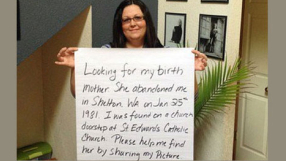 Looking for my birth
Mother. She abandoned me
in Shelton, Wa on Jan
1981. I was found on a church
doorstep at St Edwards Catholic
Church. Please help me find
her by sharing my Picture